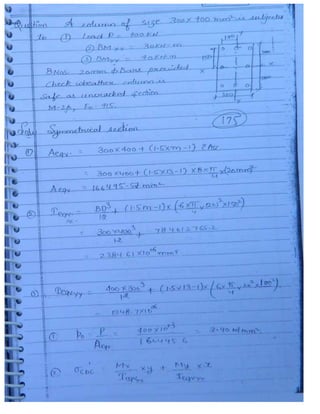 Question A column of size 300 x 400 mm² is subjected
to ① Load P = 400 KN
② BMxx = 30 KN-m
③ BMyy =
8Nos 20mm ϕ Bars provided
Check wheather column is
Safe as uncracked section
M-20, Fe-415.
175
Symmetrical section
① Aeqv. = 300x400 + (1.5m-1) ΣAsc
= 300x400 + (1.5x13-1) x 8 x π/4 x (20mm)²
Aeqv. = 166495.57 mm²
② = BD³/12 + (1.5m-1) x (6 x π/4 x 20² x 150²)
= 300x400³/12 + 784612755.2
= 2384.61 x 10⁶ mm⁴
= 400x300³/12 + (1.5x13-1) x (6x π/4 x 20² x 100²)
= 1248.7x10⁶
① = P/Aeq. = 400x10³/ = 2.40 N/mm²
② σcbc = Mx/ xy + My/ x x